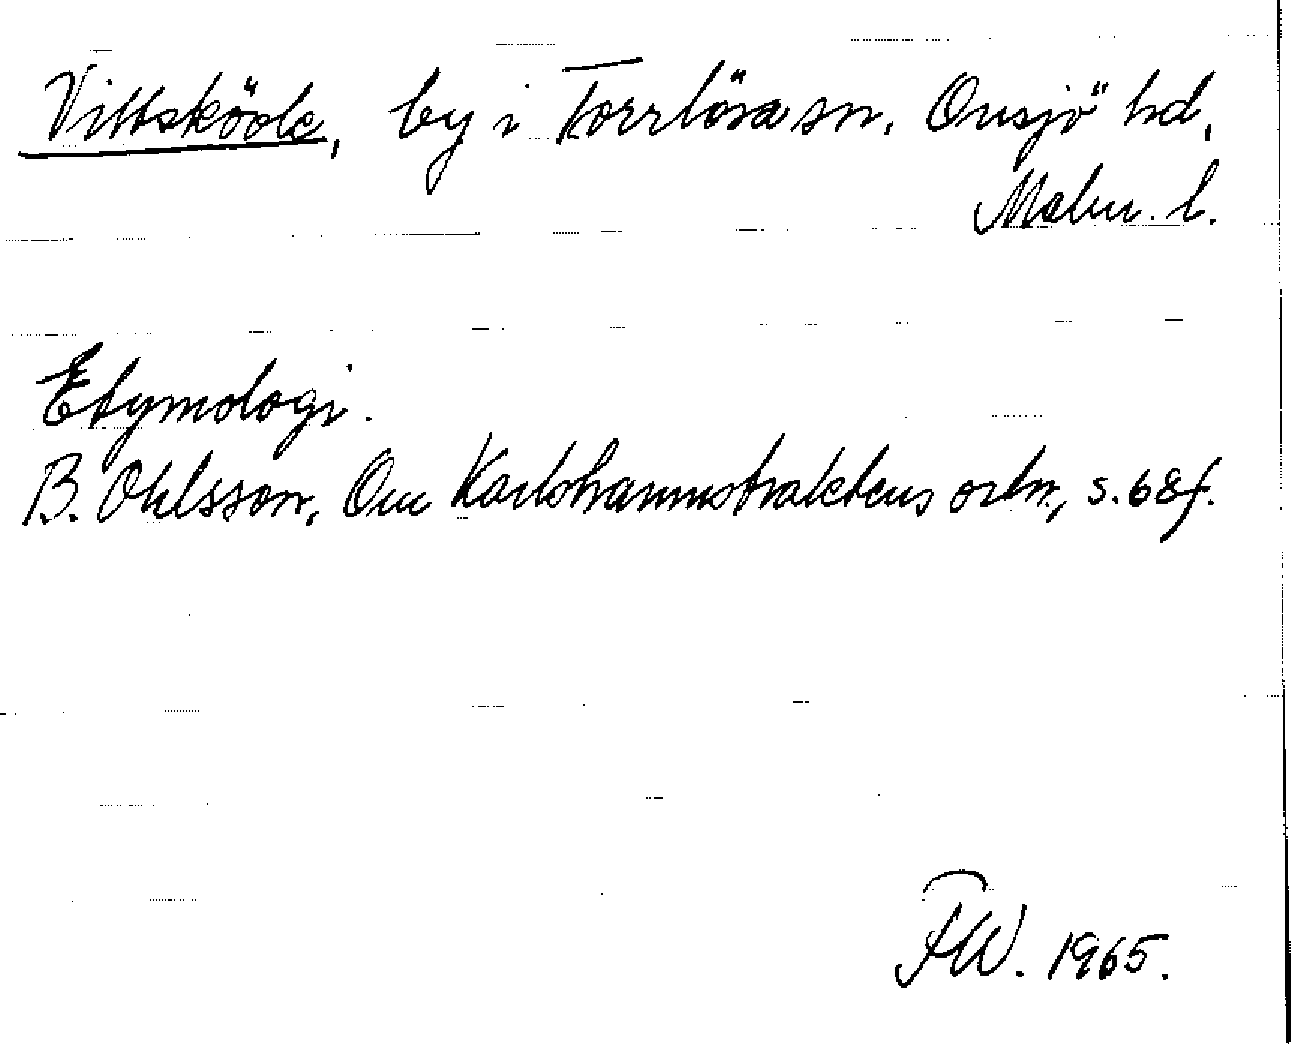 Vittsköole, by i Torrlösa sn. Onsjö hd,
Malm. l.
Etymologi.
B. Ohlsson, Om Karlshamnstraktens ortn, s. 68f.
FW. 1965.